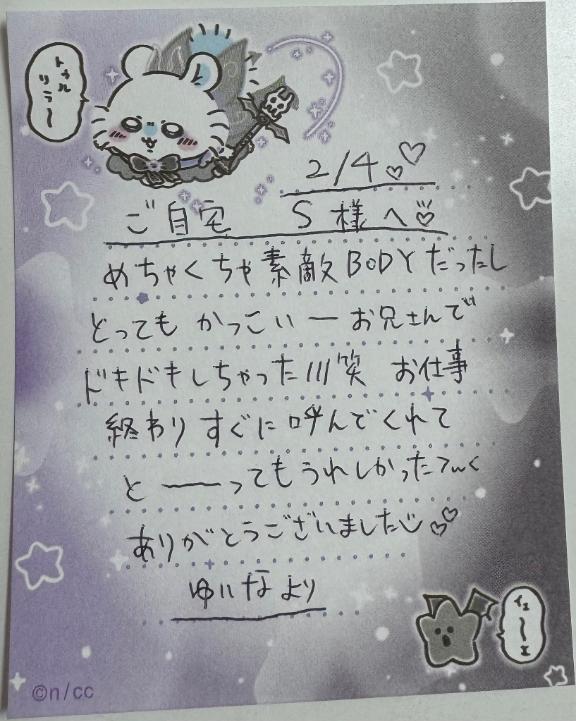 トゥル
リラ〜
2/4♡♡
ご自宅 S様へ♡
めちゃくちゃ素敵BODYだったし
とっても かっこいーお兄さんで
ドキドキしちゃった///笑 お仕事
終わり すぐに 呼んでくれて
と――ってもうれしかった
ありがとうございました♡♡
ゆいなより
イェ〜ェ
©n/cc